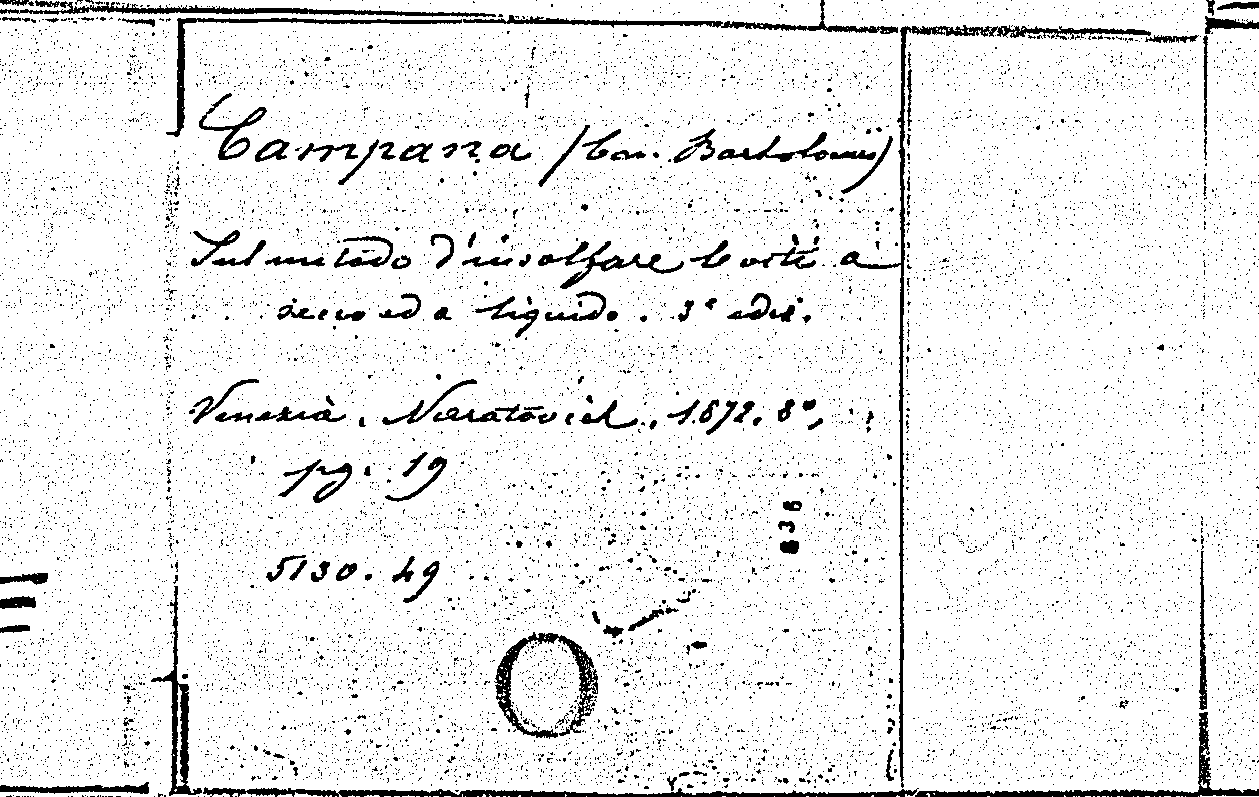 Campana (Can. Bartolomeo)
Sul metodo d'insolfare le viti a
secco ed a liquido. 3ª ediz.
Venezia, Naratovich, 1872. 8°,
pg. 19
5130. 49
836
O